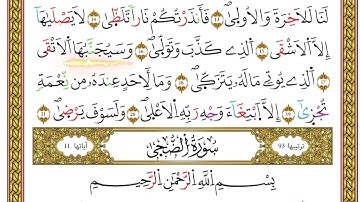 لَنَا لَلْآخِرَةَ وَالْأُولَىٰ ﴿١٣﴾ فَأَنذَرْتُكُمْ نَارًا تَلَظَّىٰ ﴿١٤﴾ لَا يَصْلَىٰهَا
إِلَّا الْأَشْقَى ﴿١٥﴾ الَّذِي كَذَّبَ وَتَوَلَّىٰ ﴿١٦﴾ وَسَيُجَنَّبُهَا الْأَتْقَى
﴿١٧﴾ الَّذِي يُؤْتِي مَالَهُ يَتَزَكَّىٰ ﴿١٨﴾ وَمَا لِأَحَدٍ عِندَهُ مِن نِّعْمَةٍ
تُجْزَىٰ ﴿١٩﴾ إِلَّا ابْتِغَاءَ وَجْهِ رَبِّهِ الْأَعْلَىٰ ﴿٢٠﴾ وَلَسَوْفَ يَرْضَىٰ ﴿٢١﴾
ترتيبها 93 سُورَةُ الضُّحَىٰ آياتها 11
بِسْمِ اللَّهِ الرَّحْمَٰنِ الرَّحِيمِ